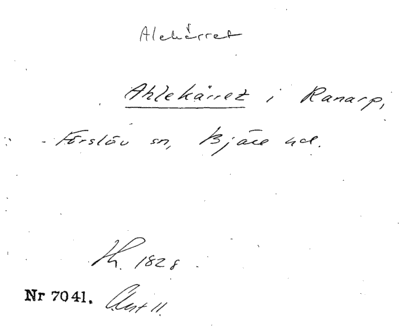 Alekärret
Ahlekärret i Ranarp,
Förslöv sn, Bjäre hd.
1828
Nr 7041. 11.